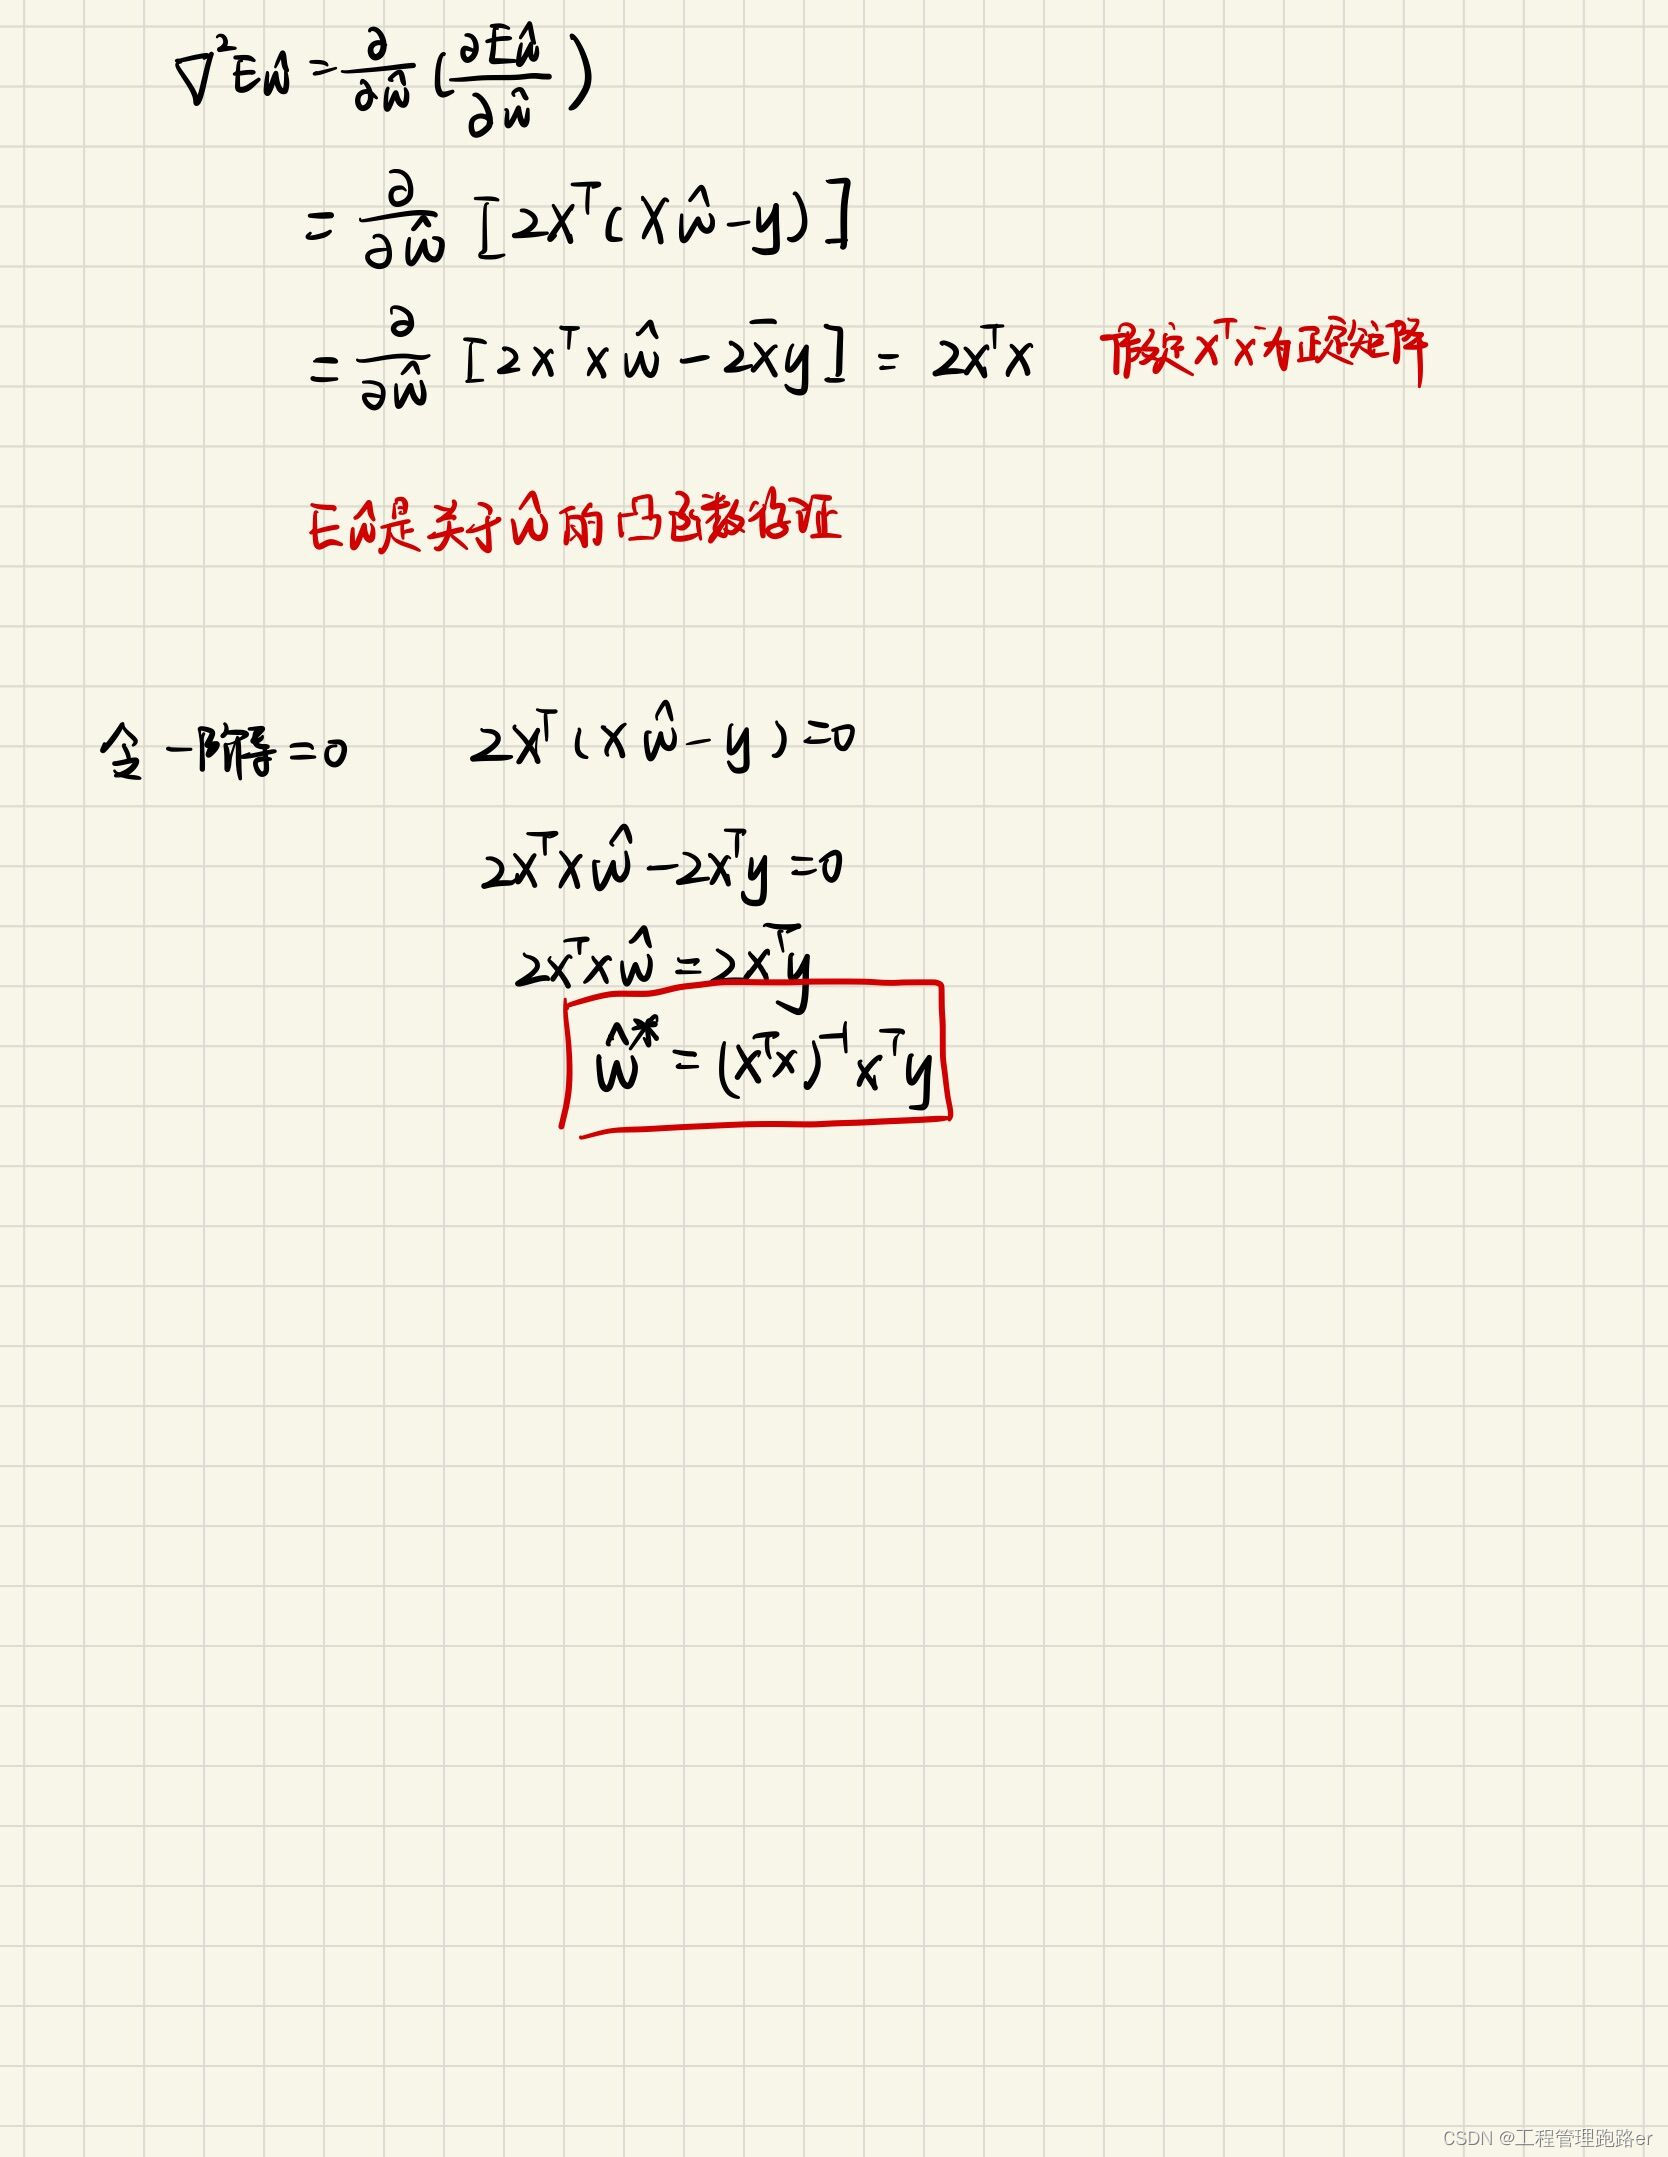 ∇²Eŵ = ∂/∂ŵ (∂Eŵ/∂ŵ)
= ∂/∂ŵ [2Xᵀ(Xŵ-y)]
= ∂/∂ŵ [2xᵀxŵ - 2x̄y] = 2xᵀx 假定xᵀx为正定矩阵
Eŵ是关于ŵ的凸函数得证
令一阶导=0 2xᵀ(xŵ-y)=0
2xᵀxŵ-2xᵀy=0
2xᵀxŵ=2xᵀy
ŵ*=(xᵀx)⁻¹xᵀy
CSDN @工程管理跑路er